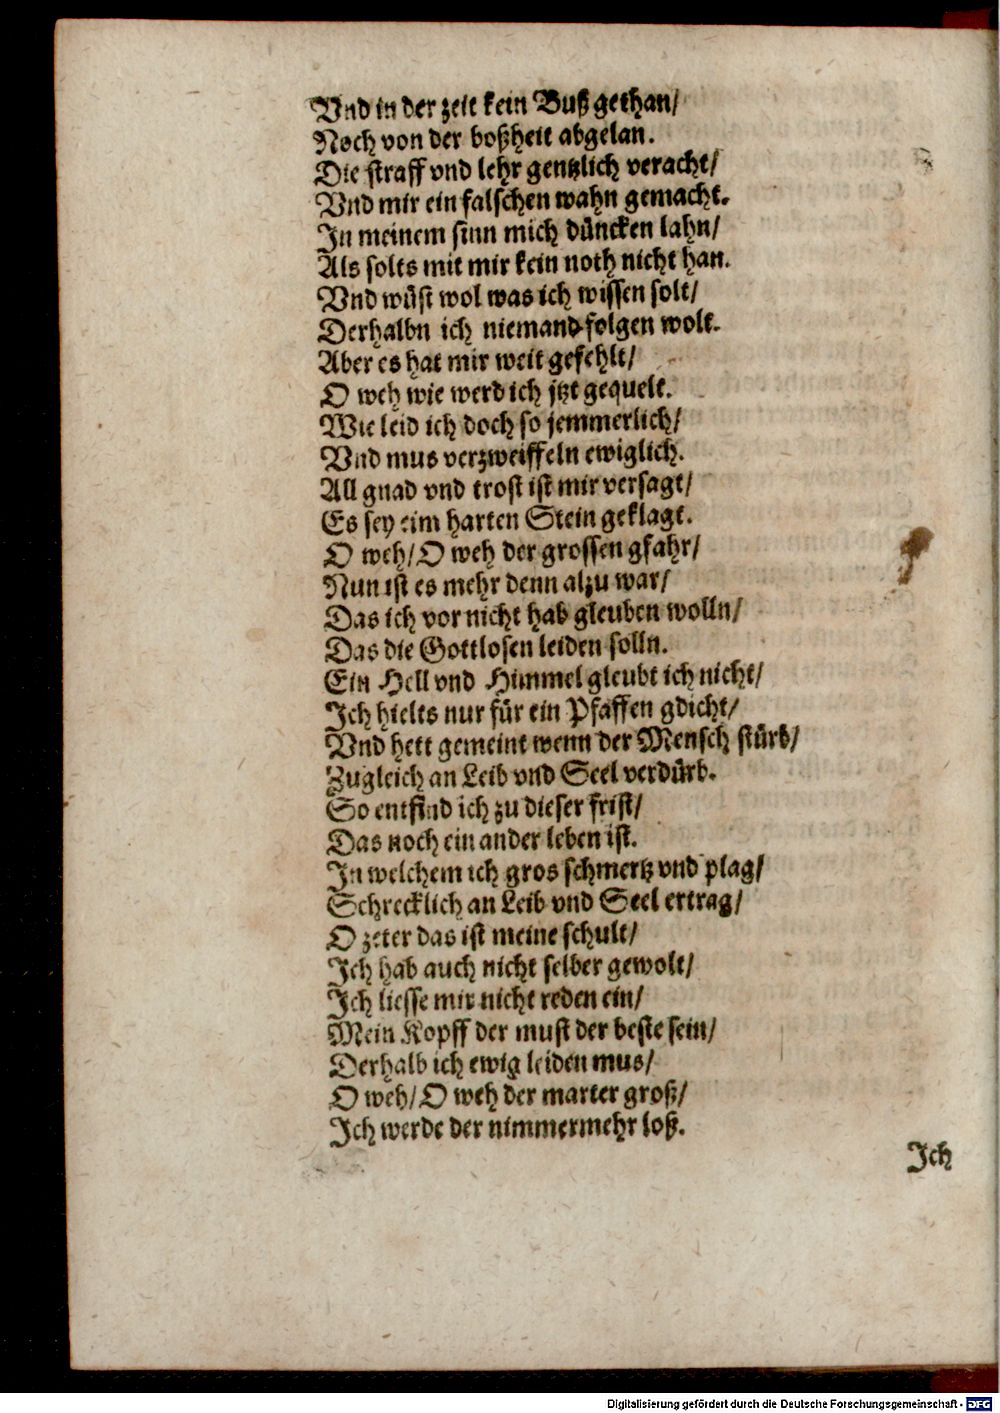 Vnd in der zeit kein Buß gethan/
Noch von der boßheit abgelan.
Die straff vnd lehr gentzlich veracht/
Vnd mir ein falschen wahn gemacht.
In meinem sinn mich düncken lahn/
Als solts mit mir kein noth nicht han.
Vnd wüst wol was ich wissen solt/
Derhalbn ich niemand folgen wolt.
Aber es hat mir weit gefehlt/
O weh wie werd ich jtzt gequelt.
Wie leid ich doch so jemmerlich/
Vnd mus verzweiffeln ewiglich.
All gnad vnd trost ist mir versagt/
Es sey eim harten Stein geklagt.
O weh/ O weh der grossen gfahr/
Nun ist es mehr denn alzu war/
Das ich vor nicht hab gleuben wolln/
Das die Gottlosen leiden solln.
Ein Hell vnd Himmel gleubt ich nicht/
Ich hielts nur für ein Pfaffen gdicht/
Vnd hett gemeint wenn der Mensch stürb/
Zugleich an Leib vnd Seel verdürb.
So entfind ich zu dieser frist/
Das noch ein ander leben ist.
In welchem ich gros schmertz vnd plag/
Schrecklich an Leib vnd Seel ertrag/
O zeter das ist meine schult/
Ich hab auch nicht selber gewolt/
Ich liesse mir nicht reden ein/
Mein Kopff der must der beste sein/
Derhalb ich ewig leiden mus/
O weh/ O weh der marter groß/
Ich werde der nimmermehr loß.
Ich
Digitalisierung gefördert durch die Deutsche Forschungsgemeinschaft - DFG